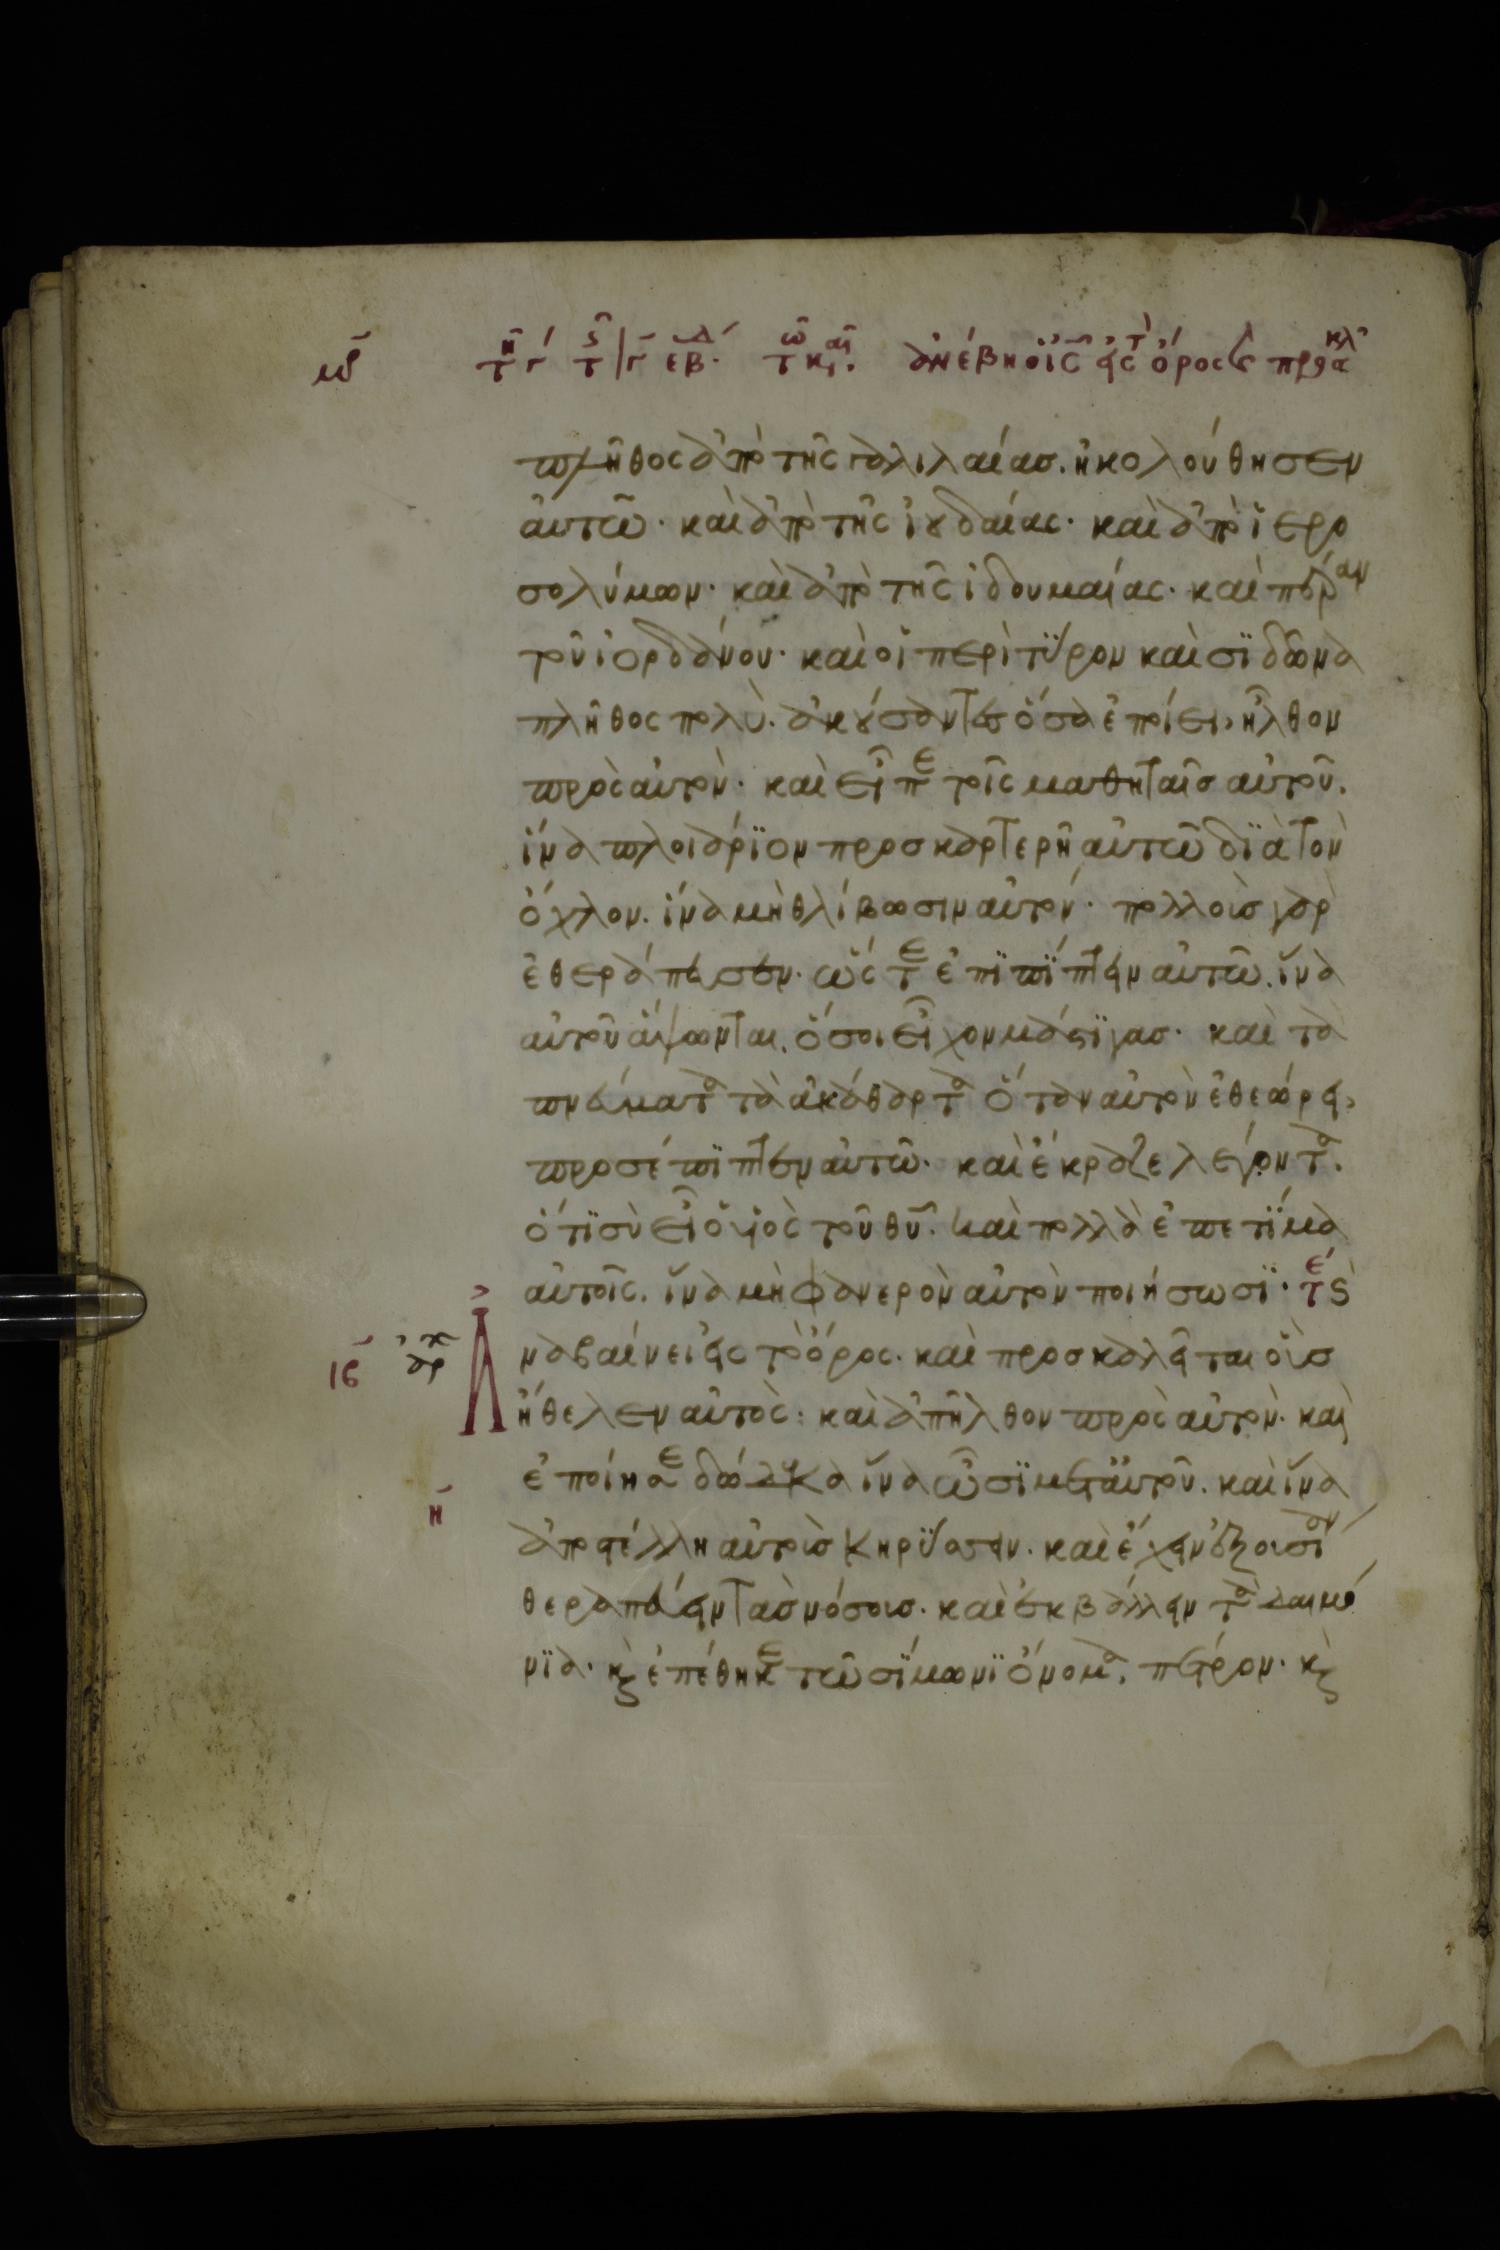 πλῆθος ἀπὸ τῆς γαλιλαίας. ἠκολούθησεν
αὐτῶ· καὶ ἀπὸ τῆς ἰουδαίας· καὶ ἀπὸ ἱερο
σολύμων· καὶ ἀπὸ τῆς ἰδουμαίας· καὶ πέραν
τοῦ ἰορδάνου· καὶ οἱ περὶ τύρον καὶ σϊδῶνα
πλῆθος πολὺ. ἀκούσαντες ὅσα ἐποίει, ἦλθον
πρὸς αὐτὸν· καὶ εἶπε τοῖς μαθηταῖς αὐτοῦ.
ἵνα πλοιάρϊον προσκαρτερῆ αὐτῶ δϊὰ τὸν
ὄχλον. ἵνα μὴ θλίβωσιν αὐτόν· πολλοὺς γὰρ
ἐθεράπευσεν· ὥς τε ἐπϊπΐπτειν αὐτῶ. ἵνα
αὐτοῦ ἅψωνται. ὅσοι εἶχον μάστϊγας· καὶ τὰ
πνεύματα τὰ ἀκάθαρτα ὅταν αὐτὸν ἐθεώρει,
προσέπϊπτεν αὐτῶ· καὶ ἔκραζε λέγοντα.
ὅτϊ σὺ εἶ ὁ υἱὸς τοῦ θυ̅. καὶ πολλὰ ἐπετΐμα
αὐτοῖς. ἵνα μὴ φανερὸν αὐτὸν ποιήσωσϊ· τε
Ἀναβαίνει εἰς τὸ ὄρος. καὶ προσκαλεῖται οὓς
ιϛ ἀρχ
ἤθελεν αὐτὸς: καὶ ἀπῆλθον πρὸς αὐτὸν. καὶ
ἐποίησε δώδεκα ἵνα ὦσϊ μετ' αὐτοῦ. καὶ ἵνα
η
ἀποστέλλη αὐτοὺς κηρύσσειν. καὶ ἔχειν ἐξουσίαν
θεραπεύειν τὰς νόσους. καὶ ἐκβάλλειν τὰ δαιμό
νϊα· κ̀ ἐπέθηκε τῶ σΐμωνϊ ὄνομα. πέτρον· κ̀